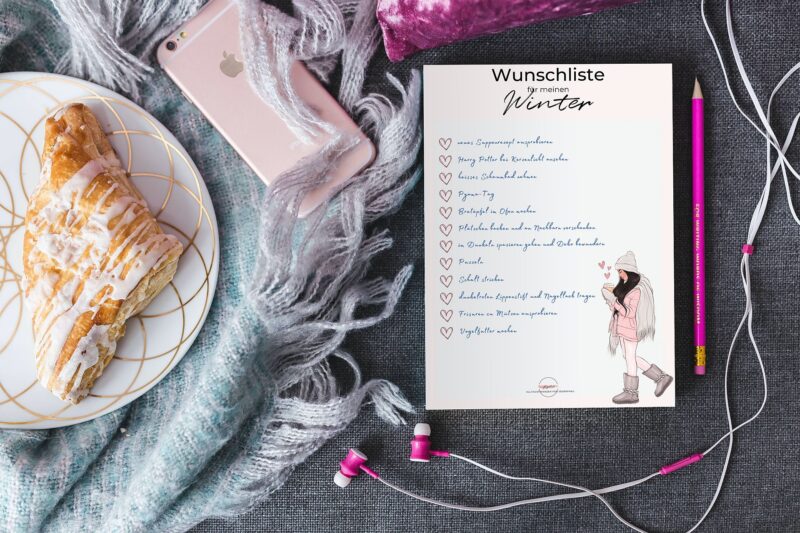 Wunschliste
für meinen
Winter
neues Supenrezept ausprobieren
Harry Potter bei Kerzenlicht ansehen
heisses Schaumbad nehmen
Pyjama-Tag
Bratapfel im Ofen machen
Plätzchen backen und an Nachbarn verschenken
im Dunkeln spazieren gehen und Deko bewundern
Puzzeln
Schal stricken
dunkelroten Lippenstift und Nagellack tragen
Frisuren zu Mützen ausprobieren
Vogelfutter machen